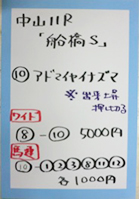 中山11R
「船橋S」
⑩アドマイヤイナズマ
※出来上昇
押し切る
ワイド
⑧-⑩ 5000円
馬連
⑩-①②③⑧⑪⑫
各1000円